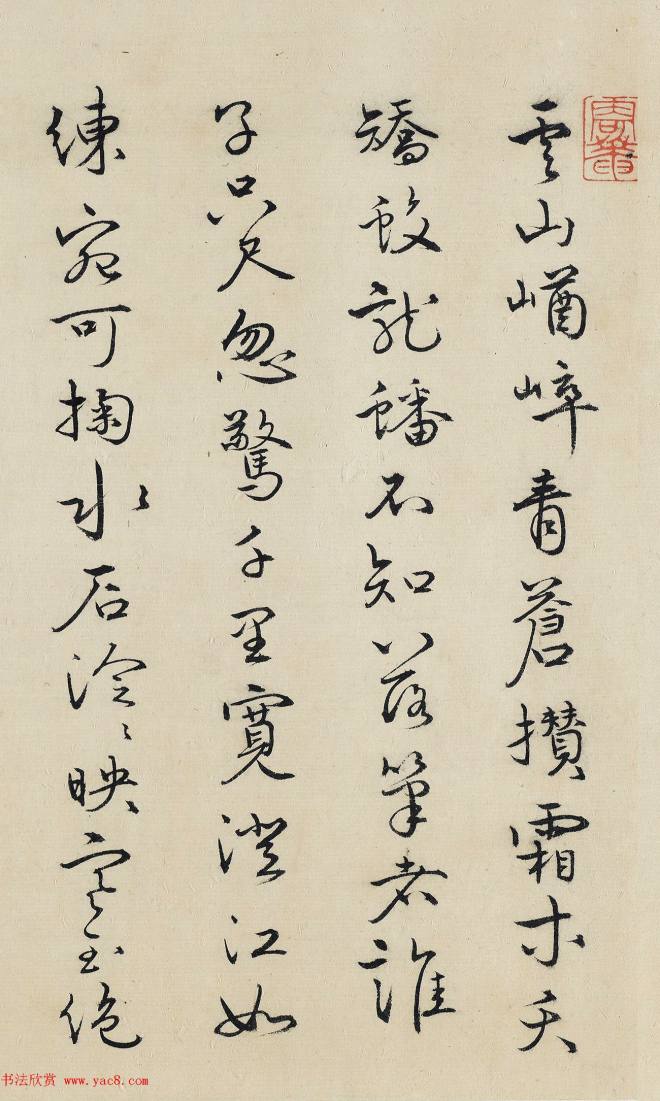 雲山崷崪青蒼攢霜木夭
矯蛟龍蟠不知落筆者誰
子只尺忽驚千里寬澄江如
練宛可掬水石泠〻映寒玉絶
书法欣赏 www.yac8.com